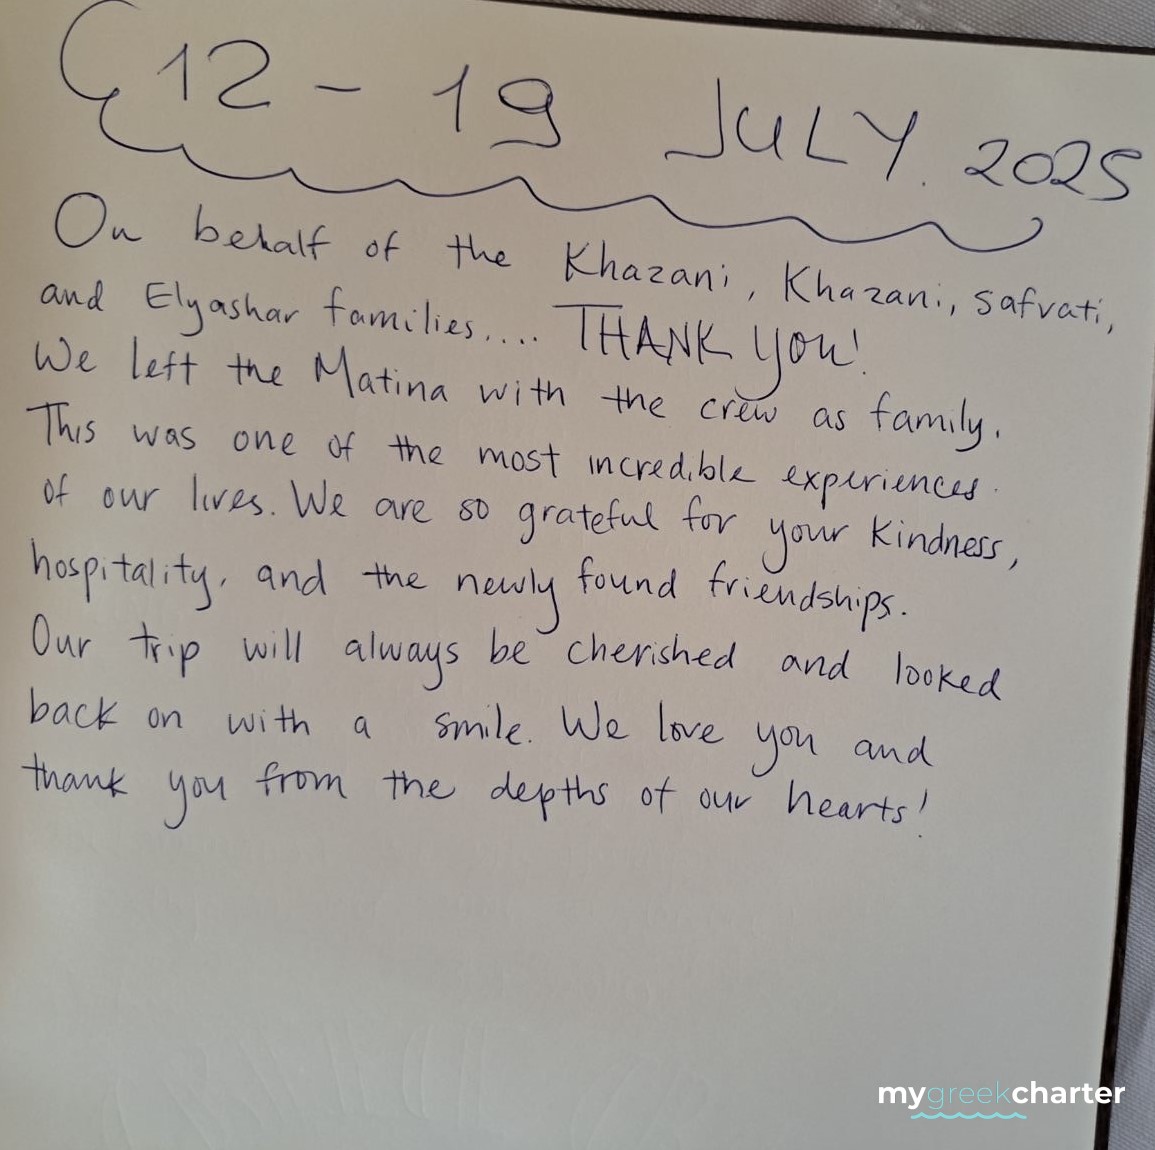 12 - 19 JULY. 2025
On behalf of the Khazani, Khazani, Safvati,
and Elyashar families.... THANK YOU!
We left the Matina with the crew as family.
This was one of the most incredible experiences
of our lives. We are so grateful for your kindness,
hospitality, and the newly found friendships.
Our trip will always be cherished and looked
back on with a smile. We love you and
thank you from the depths of our hearts!
mygreekcharter